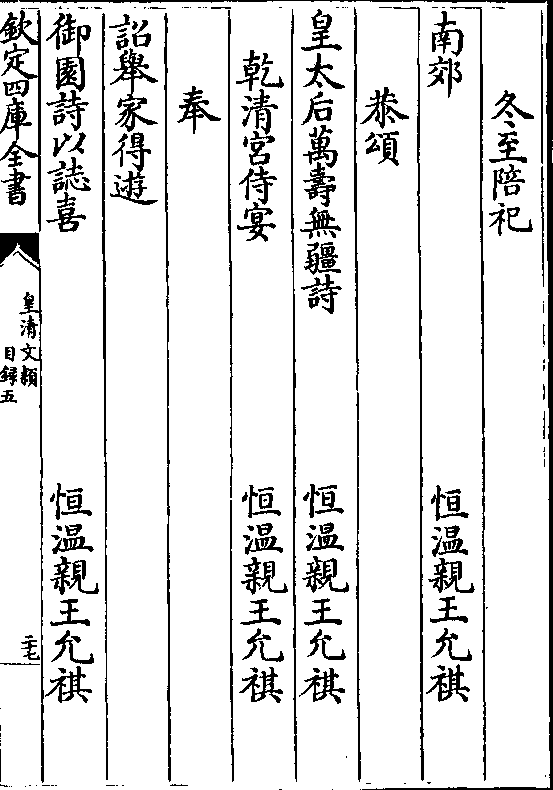 冬至陪祀
南郊　恒温親王允祺
恭頌
皇太后萬壽無疆詩　恒温親王允祺
乾清宮侍宴　恒温親王允祺
奉
詔舉家得遊
御園詩以誌喜　恒温親王允祺
欽定四庫全書
皇清文穎
目録五
二七